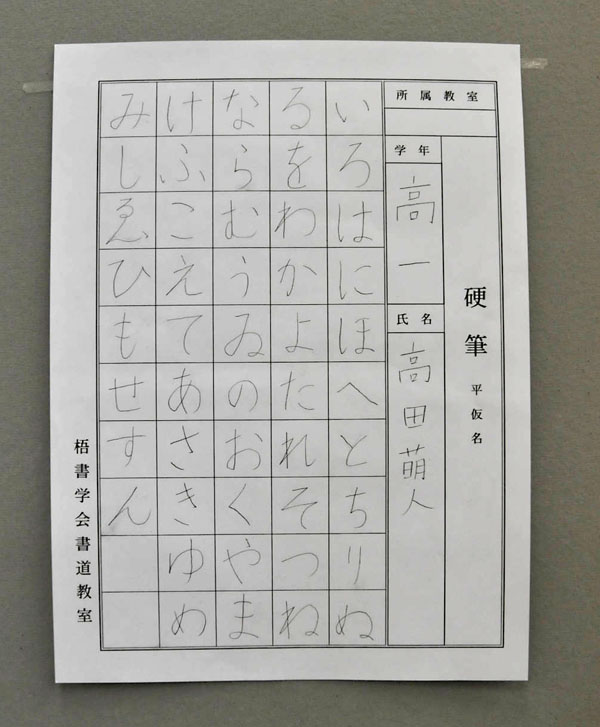 硬筆 平仮名
所属教室
学年
高一
氏名
高田萌人
いろはにほへとちりぬ
るをわかよたれそつね
ならむうゐのおくやま
けふこえてあさきゆめ
みしゑひもせすん
梧書学会書道教室